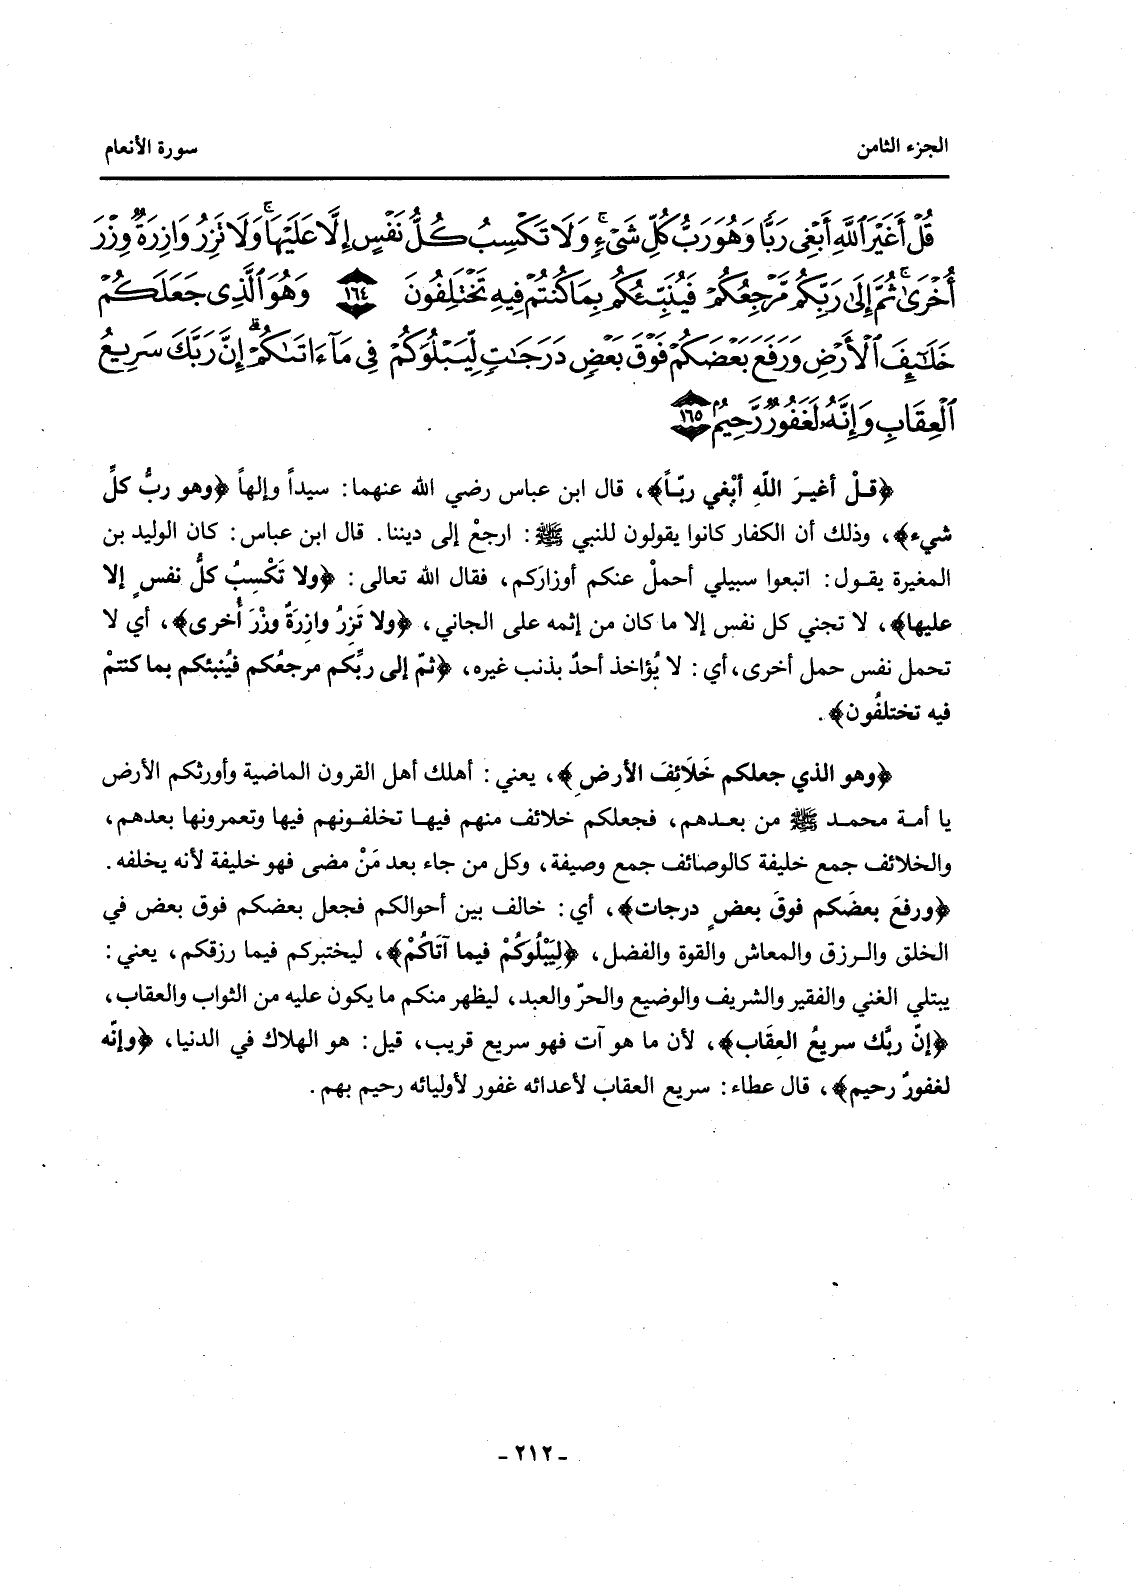 الجزء الثامن
سورة الأنعام
قُلْ أَغَيْرَ ٱللَّهِ أَبْغِى رَبًّا وَهُوَ رَبُّ كُلِّ شَىْءٍ ۚ وَلَا تَكْسِبُ كُلُّ نَفْسٍ إِلَّا عَلَيْهَا ۚ وَلَا تَزِرُ وَازِرَةٌ وِزْرَ
أُخْرَىٰ ۚ ثُمَّ إِلَىٰ رَبِّكُم مَّرْجِعُكُمْ فَيُنَبِّئُكُم بِمَا كُنتُمْ فِيهِ تَخْتَلِفُونَ ١٦٤ وَهُوَ ٱلَّذِى جَعَلَكُمْ
خَلَـٰٓئِفَ ٱلْأَرْضِ وَرَفَعَ بَعْضَكُمْ فَوْقَ بَعْضٍ دَرَجَـٰتٍ لِّيَبْلُوَكُمْ فِى مَآ ءَاتَىٰكُمْ ۗ إِنَّ رَبَّكَ سَرِيعُ
ٱلْعِقَابِ وَإِنَّهُۥ لَغَفُورٌ رَّحِيمٌ ١٦٥
﴿قـلْ أغيـرَ اللّهِ أبْغي ربّـاً﴾، قال ابن عباس رضي الله عنهما: سيداً وإلهاً ﴿وهو ربُّ كلِّ
شيء﴾، وذلك أن الكفار كانوا يقولون للنبي ﷺ: ارجعْ إلى ديننا. قال ابن عباس: كان الوليد بن
المغيرة يقـول: اتبعوا سبيلي أحملْ عنكم أوزارَكم، فقال الله تعالى: ﴿ولا تَكْسِبُ كلُّ نفسٍ إلا
عليها﴾، لا تجني كل نفس إلا ما كان من إثمه على الجاني، ﴿ولا تَزِرُ وازِرَةٌ وِزْرَ أُخرى﴾، أي لا
تحمل نفس حمل أخرى، أي: لا يُؤاخذ أحدٌ بذنب غيره، ﴿ثمّ إلى ربِّكم مرجعُكم فيُنبئكم بما كنتمْ
فيه تختلفُون﴾.
﴿وهو الذي جعلكم خَلَائِفَ الأرضِ﴾، يعني: أهلك أهل القرون الماضية وأورثكم الأرض
يا أمـة محمـد ﷺ من بعـدهم، فجعلكم خلائف منهم فيهـا تخلفـونهم فيها وتعمرونها بعدهم،
والخلائف جمع خليفة كالوصائف جمع وصيفة، وكل من جاء بعد مَنْ مضى فهو خليفة لأنه يخلفه.
﴿ورفعَ بعضَكم فوقَ بعضٍ درجات﴾، أي: خالف بين أحوالكم فجعل بعضكم فوق بعض في
الخلق والـرزق والمعاش والقوة والفضل، ﴿لِيَبْلُوَكُمْ فيما آتَاكُمْ﴾، ليختبركم فيما رزقكم، يعني:
يبتلي الغني والفقير والشريف والوضيع والحرّ والعبد، ليظهر منكم ما يكون عليه من الثواب والعقاب،
﴿إنّ ربَّك سريعُ العِقَاب﴾، لأن ما هو آت فهو سريع قريب، قيل: هو الهلاك في الدنيا، ﴿وإنّه
لغفورٌ رحيم﴾، قال عطاء: سريع العقاب لأعدائه غفور لأوليائه رحيم بهم.
- ٢١٢ -